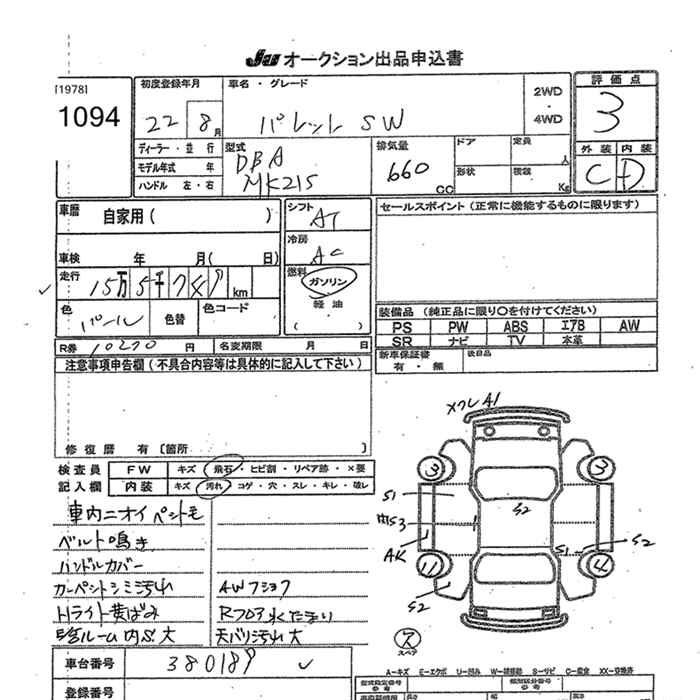 JU オークション出品申込書
[1978]
1094
初度登録年月
22 8月
車名・グレード
パレット SW
2WD
・
4WD
評価点
3
外装 内装
C D
ディーラー・並行
モデル年式 年
ハンドル 左・右
型式
DBA
MK21S
排気量
660 CC
ドア
定員 人
形状
積載 Kg
車歴 自家用( )
車検 年 月( 日)
シフト AT
冷房 AC
燃料 ガソリン
軽油
( )
走行 15万5千749km
色 パール
色替
色コード
R券 10270 円 名変期限 月 日
セールスポイント(正常に機能するものに限ります)
装備品(純正品に限り○を付けてください)
PS PW ABS エアB AW
SR ナビ TV 本革
新車保証書
有・無
後日品
注意事項申告欄(不具合内容等は具体的に記入して下さい)
修復歴 有〔箇所 〕
検査員 FW キズ・飛石・ヒビ割・リペア跡・×要
記入欄 内装 キズ・汚れ・コゲ・穴・スレ・キレ・破レ
車内ニオイ
ベルト鳴き
ハンドルカバー
シミ汚れ
Hライト黄ばみ
ルーム内
AW フショク
Rフロア水たまり
天バリ汚れ大
メクレA1
3
3
S1
S2
S3
AK
S1
S2
4
S2
ス
スペア
車台番号 380189
登録番号
A-キズ E-エクボ U-凹み W-補修跡 S-サビ C-腐食 XX-交換済
型式指定番号
参考
類別区分番号
参考